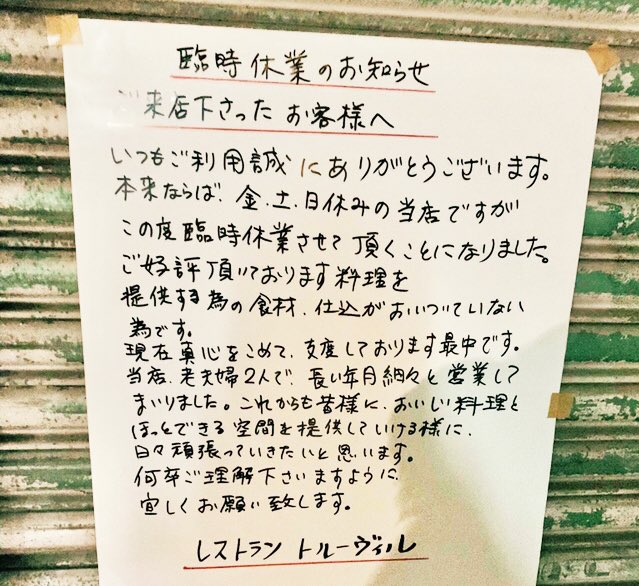 臨時休業のお知らせ
ご来店下さったお客様へ
いつもご利用誠にありがとうございます。
本来ならば、金、土、日休みの当店ですが
この度臨時休業させて頂くことになりました。
ご好評頂いております料理を
提供する為の食材、仕込がおいついていない
為です。
現在真心をこめて、支度しております最中です。
当店、老夫婦2人で、長い年月細々と営業して
まいりました。これからも皆様に、おいしい料理と
ほっとできる空間を提供していける様に、
日々頑張っていきたいと思います。
何卒ご理解下さいますように
宜しくお願い致します。
レストラン トルーヴィル